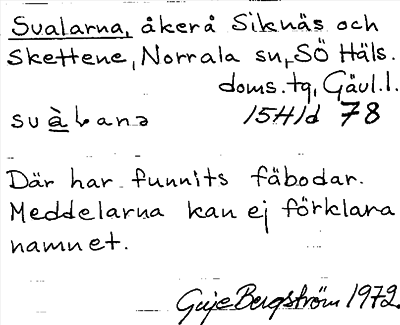 Svalarna, åkerå Siknäs och
Skettene, Norrala sn, SÖ Häls.
doms. tg, Gävl. l.
svàlana 15H1d 78
Där har funnits fäbodar.
Meddelarna kan ej förklara
namnet.
Bergström 1972.